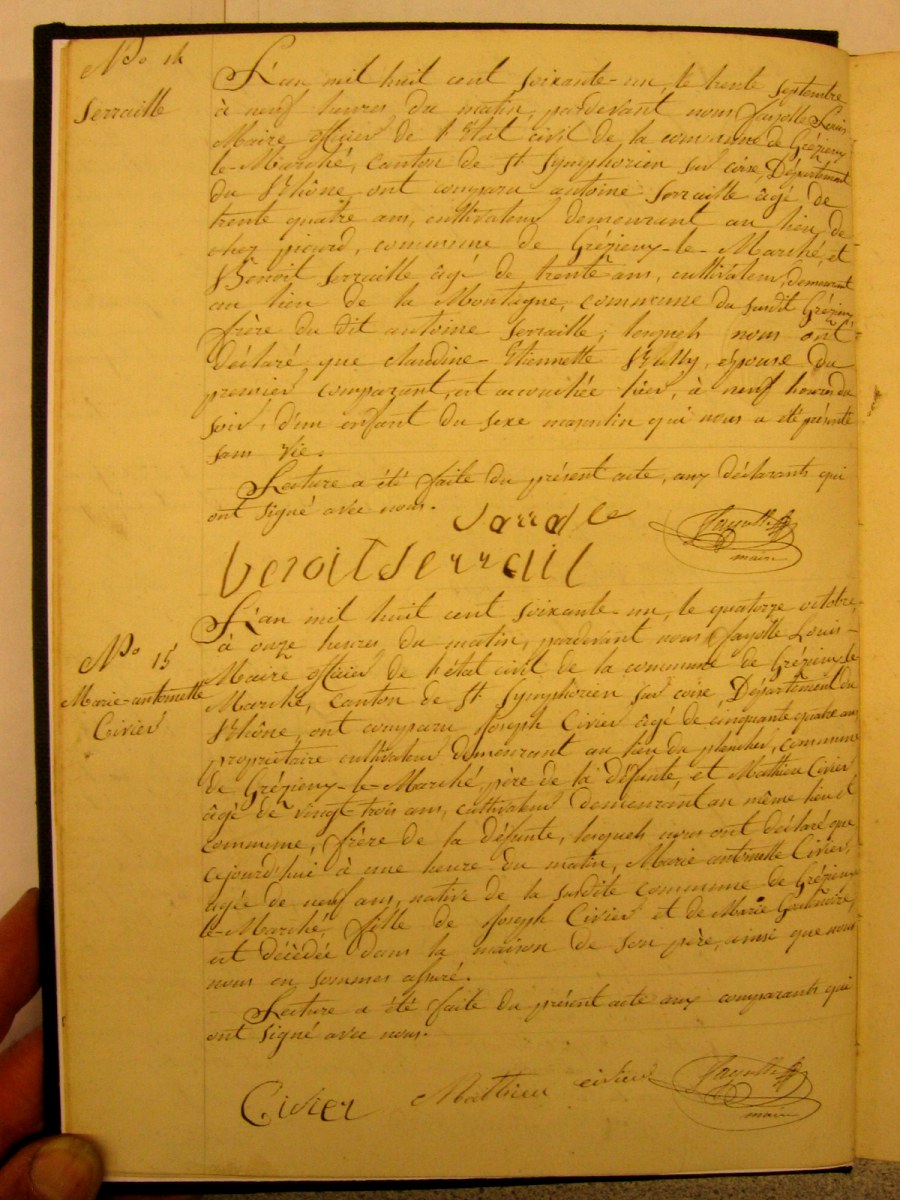 No 14
Serraille
L'an mil huit cent soixante-un, le trente Septembre
à neuf heures du matin, pardevant nous fayolle Louis
Maire officier de l'état civil de la commune de Grézieux
le-Marché, canton de St Symphorien sur coise, Département
du Rhône, ont comparu antoine Serraille âgé de
trente quatre ans, cultivateur demeurant au lieu de
chez picard, commune de Grézieux-le-Marché, et
Benoit Serraille âgé de trente ans, cultivateur, demeurant
au lieu de la Montagne, commune du susdit Grézieux
frère du dit antoine Serraille; lesquels nous ont
Déclaré que claudine-Etiennette épouse du
premier comparant, est accouchée hier, à neuf heures du
soir, d'un enfant du sexe masculin qui nous a été présenté
sans vie.
Lecture a été faite du présent acte, aux déclarants qui
ont signé avec nous.
fayolle
maire
benoit Serrail
No 15
Marie-antoinette
Civier
L'an mil huit cent soixante-un, le quatorze octobre,
à onze heures du matin, pardevant nous fayolle Louis-
Maire officier de l'état civil de la commune de Grézieux-le
Marché, canton de St Symphorien sur coise, Département du
Rhône, ont comparu Joseph Civier âgé de cinquante quatre ans
propriétaire cultivateur demeurant au lieu du plancher, commune
de Grézieux-le-Marché, père de la défunte, et Mathieu Civier
âgé de vingt-trois ans, cultivateur demeurant au même lieu et
commune, frère de la défunte, lesquels nous ont déclaré que
cejourd'hui à une heure du matin, Marie antoinette Civier,
agée de neuf ans, native de la susdite commune de Grézieux
le-Marché, fille de Joseph Civier et de Marie
est décédée dans la maison de son père, ainsi que nous
nous en sommes assuré.
Lecture a été faite du présent acte aux comparants qui
ont signé avec nous.
Civier Mathieu civier fayolle
maire